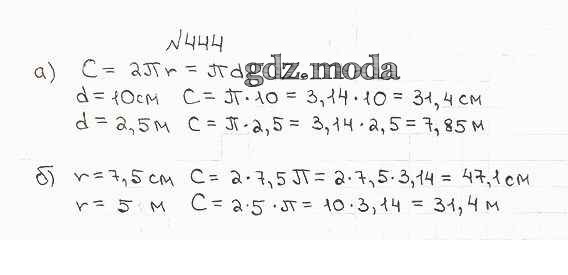 №444
а) C = 2πr = πd gdz.moda
d = 10см C = π·10 = 3,14·10 = 31,4 см
d = 2,5м C = π·2,5 = 3,14·2,5 = 7,85м
б) r = 7,5 см C = 2·7,5π = 2·7,5·3,14 = 47,1 см
r = 5 м C = 2·5·π = 10·3,14 = 31,4 м